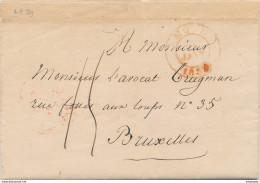 A Monsieur
Monsieur l'avocat Trugman
rue fossé aux loups N° 35
Bruxelles